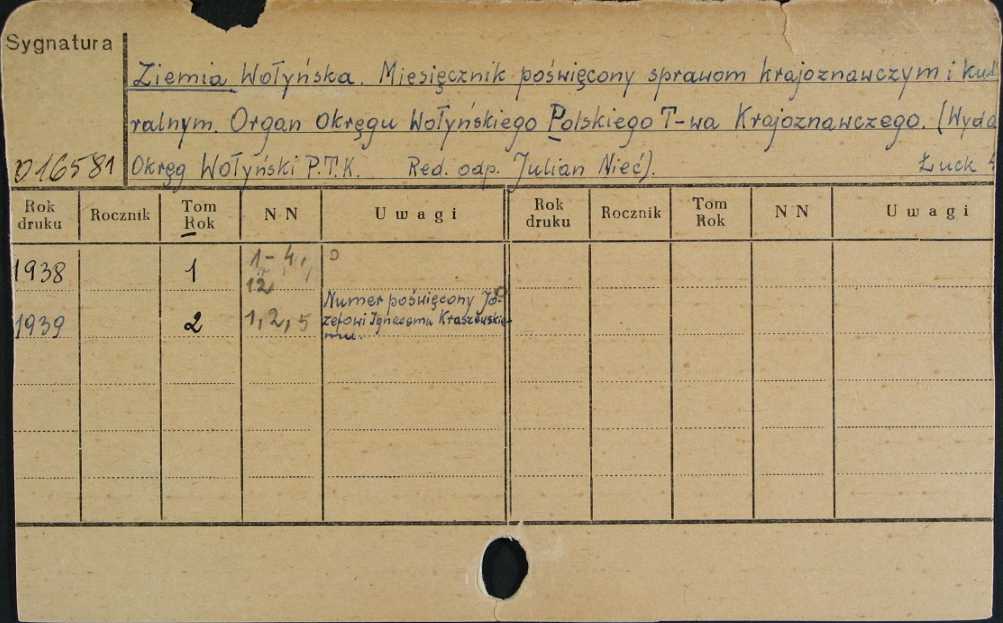 Sygnatura
Ziemia Wołyńska. Miesięcznik poświęcony sprawom krajoznawczym i kul
ralnym. Organ Okręgu Wołyńskiego Polskiego T-wa Krajoznawczego. (Wyda
016581 Okręg Wołyński P.T.K. Red. odp. Julian Nieć). Łuck
Rok druku Rocznik Tom Rok NN Uwagi Rok druku Rocznik Tom Rok NN Uwagi
1938 1 1-4, 12
1939 2 1, 2, 5 Numer poświęcony Jó-
zefowi Ignacemu Kraszewskie-
mu.